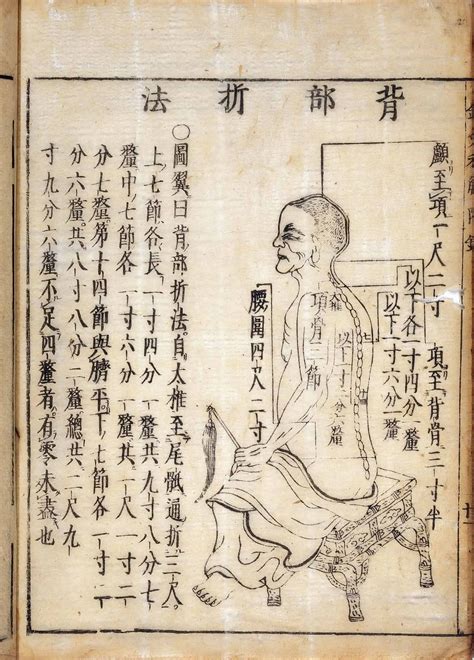 背部折法
顱至項一尺二寸
項至背骨三寸半
以下各一寸四分一釐
以下一寸六分一釐
以下一寸二分一釐
項骨三節
腰圍四尺二寸
〇圖翼曰背部折法自太椎至尾骶通折三尺
上七節各長一寸四分一釐共九寸八分七
釐中七節各一寸六分一釐共一尺一寸二
分七釐第十四節與臍平下七節各一寸二
分六釐共八寸八分二釐總共二尺九
寸九分六釐不足四釐者有零未盡也